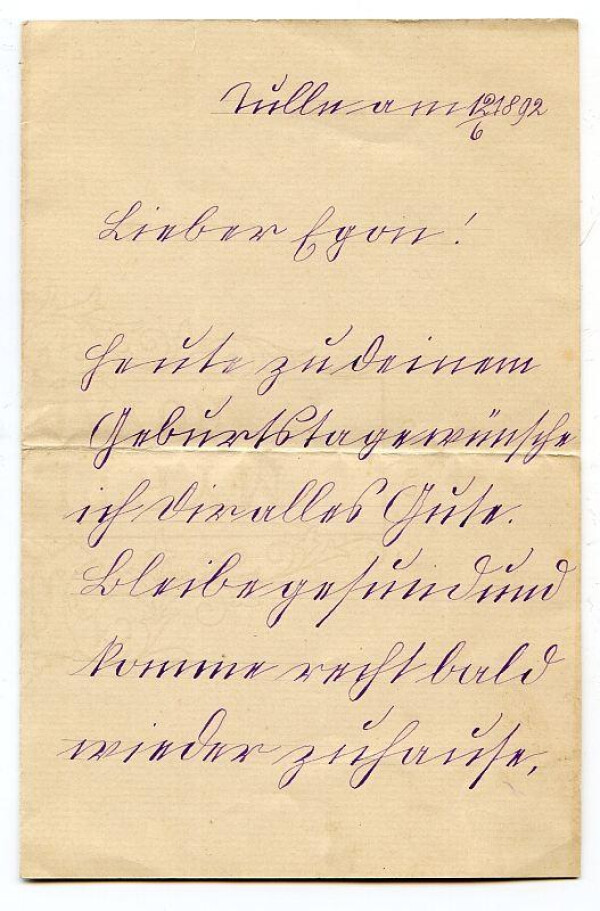 Tulln am 12/6 1892
Lieber Egon!
Heute zu deinem
Geburtstage wünsche
ich dir alles Gute.
Bleibe gesund und
komme recht bald
wieder zuhause,